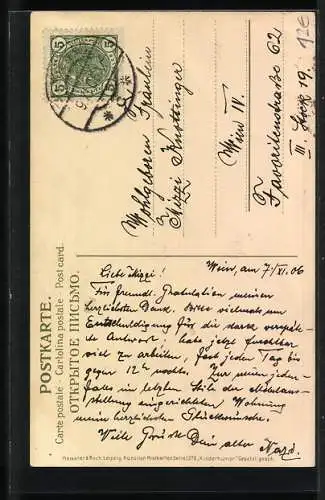 5 5
Wohlgeboren Fräulein
Mizzi Knottinger
Wien IV.
Favoritenstraße 62
III. Stock 19.
POSTKARTE.
ОТКРЫТОЕ ПИСЬМО.
Carte postale - Cartolina postale - Post card.
Wien, am 7/XI. 06
Liebe Mizzi!
Für freundl. Gratulation meinen
herzlichsten Dank. Bitte vielmals um
Entschuldigung für die stark verspä-
tete Antwort. hab jetzt furchtbar
viel zu arbeiten, fast jeden Tag bis
gegen 12h nachts. Zur neuen jeden-
falls im letzten Stil der Möbelaus-
stellung eingerichteten Wohnung
meine herzlichsten Glückwünsche.
Viele Grüsse Dein alter
Meissner & Buch, Leipzig. Künstler-Postkarten Serie "Kinderhumor" Gesetzl. gesch.